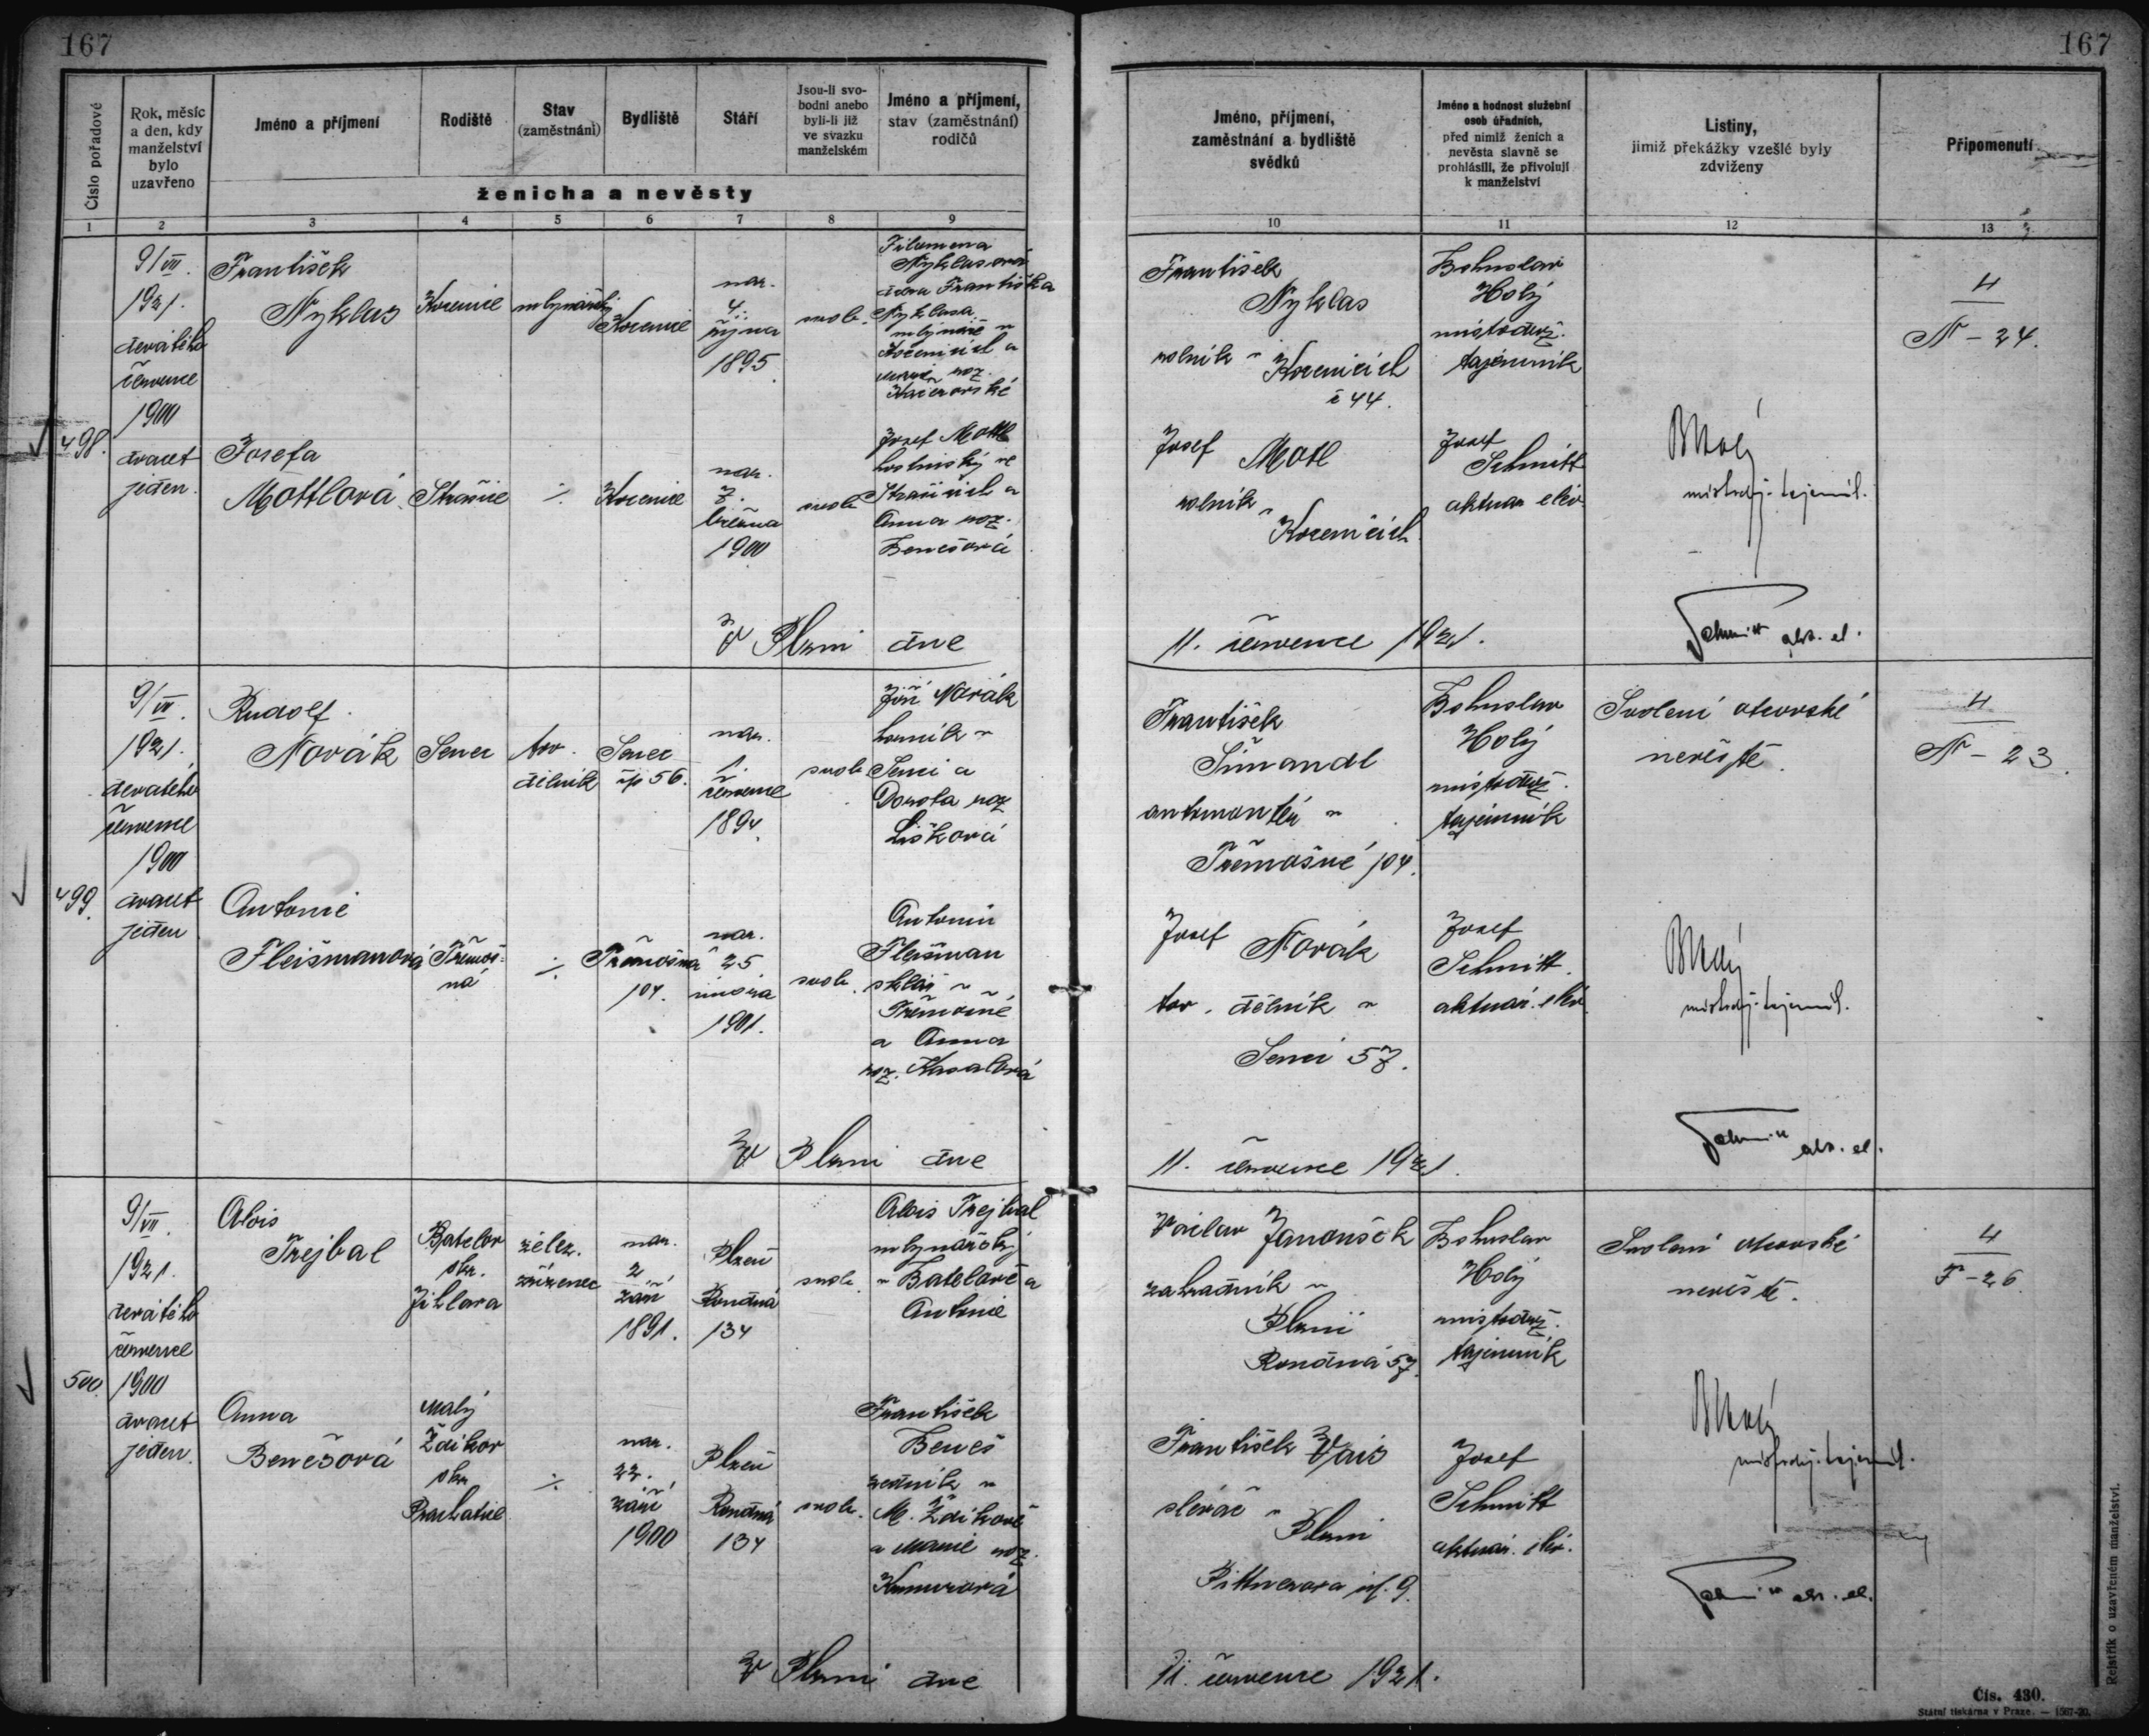 167
167
Číslo pořadové
Rok, měsíc
a den, kdy
manželství
bylo
uzavřeno
Jméno a příjmení
Rodiště
Stav
(zaměstnání)
Bydliště
Stáří
Jsou-li svo-
bodni anebo
byli-li již
ve svazku
manželském
Jméno a příjmení,
stav (zaměstnání)
rodičů
ženicha a nevěsty
1
2
3
4
5
6
7
8
9
Jméno, příjmení,
zaměstnání a bydliště
svědků
Jméno a hodnost služební
osob úřadních,
před nimiž ženich a
nevěsta slavně se
prohlásili, že přivolují
k manželství
Listiny,
jimiž překážky vzešlé byly
zdviženy
Připomenutí
10
11
12
13
498.
9/VII.
1921.
devátého
července
1900
dvacet
jeden.
František
Nyklas
Kocenice
mlynářský
Kocenice
nar.
4.
října
1895
svob.
Filomena
Nyklasová
dcera Františka
Nyklasa
mlynáře v
Kocenicích a
roz.
Josefa
Mottlová
Strašice
÷
Kocenice
nar.
7.
března
1900
svob.
Josef Mottl
hostinský ve
Strašicích a
Anna roz.
Benešová
František
Nyklas
rolník v
Kocenicích
č 44.
Josef
Motl
rolník v
Kocenicích
Bohuslav
Holý
místodrž.
tajemník
Josef
Schmitt
aktuar. elév
BHolý
místodrž. tajemník.
Schmitt akt. el.
4
N – 24.
V Plzni dne
11. července 1921.
499.
9/VII.
1921.
devátého
července
1900
dvacet
jeden
Rudolf
Novák
Senec
tov.
dělník
Senec
čp 56.
nar.
1.
července
1894.
svob.
Jiří Novák
horník v
Senci a
Dorota roz
Lišková
Antonie
Fleišmanová
Třemoš-
ná
÷
Třemošná
104.
nar.
25
února
1901.
svob.
Antonín
Fleišman
sklář v
Třemošné
a Anna
roz. Kasalová
František
Šimandl
automontér v
Třemošné 104.
Josef
Novák
tov. dělník v
Senci 57.
Bohuslav
Holý
místodrž.
tajemník
Josef
Schmitt.
aktuár. elév
Svolení otcovské
nevěstě.
BHolý
místodrž. tajemník.
Schmitt akt. el.
4
N – 23.
V Plzni dne
11. července 1921.
500.
9/VII.
1921.
devátého
července
1900
dvacet
jeden.
Alois
Trejbal
Batelov
okr.
Jihlava
želez.
zřízenec
nar.
2
září
1891.
Plzeň
Roudná
134
svob.
Alois Trejbal
mlynářský
v Batelově a
Antonie
Anna
Benešová
Malý
Zdíkov
okr.
Prachatice
÷
nar.
22.
září
1900
Plzeň
Roudná
134
svob.
František
Beneš
zedník v
M. Zdíkově
a Marie roz.
Václav Janoušek
zahradník v
Plzni
Roudná 57.
František Vais
slévač v
Plzni
Pittnerova ul. 9.
Bohuslav
Holý
místodrž.
tajemník
Josef
Schmitt
aktuár. elév.
Svolení otcovské
nevěstě.
BHolý
místodrž. tajemník.
Schmitt akt. el.
4
F – 26.
V Plzni dne
11. července 1921.
Rejstřík o uzavřeném manželství.
Čís. 430.
Státní tiskárna v Praze. — 1567-20.